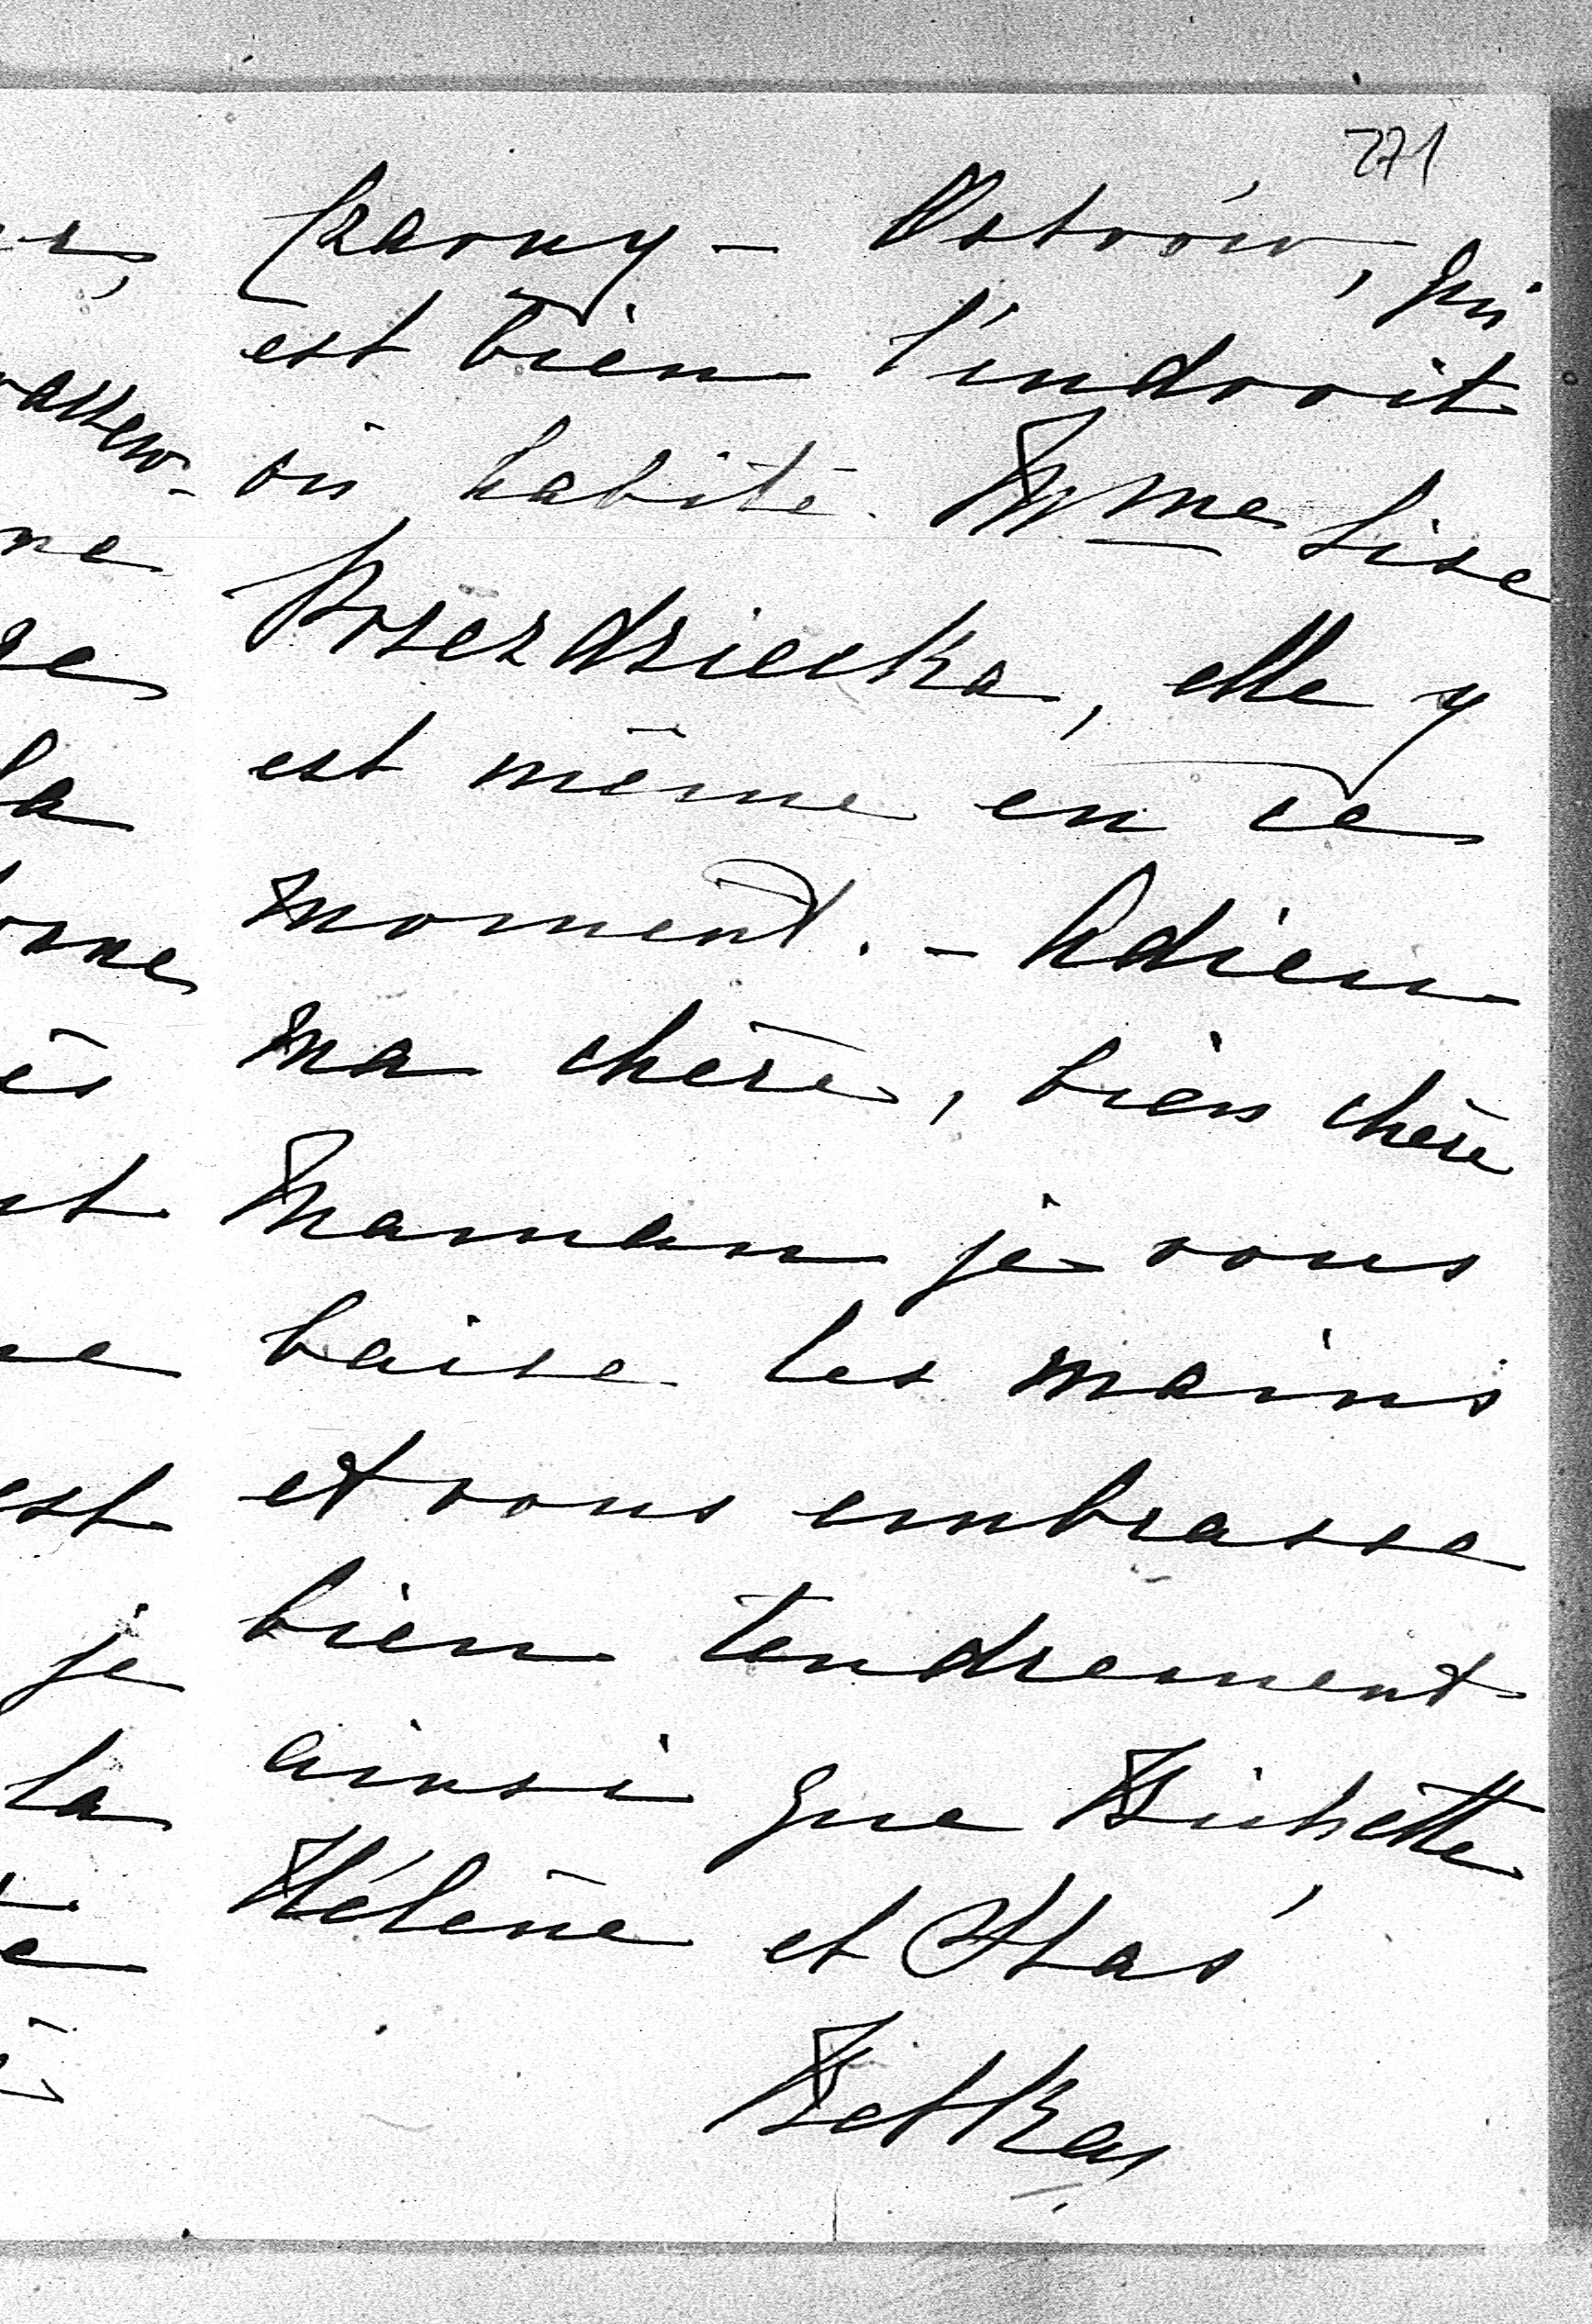 271
Czarny - Ostrów, qui
est bien l'endroit
où habite Mme Lise
Przezdziecka, elle y
est même en ce
moment. - Adieu
ma chère, bien chère
Maman je vous
baise les mains
et vous embrasse
bien tendrement
ainsi que
Hélène et Staś